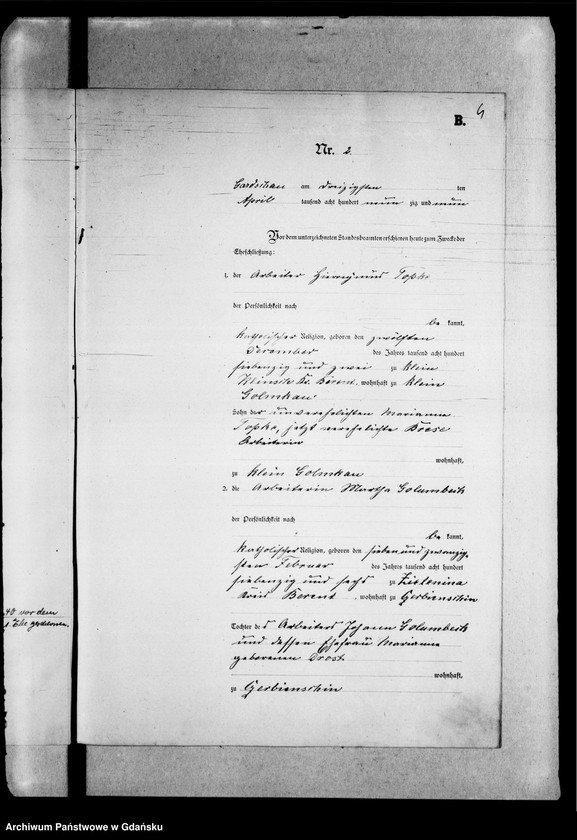 B. 4
Nr. 2.
Gardschau am dreizigsten ten
April tausend acht hundert neun zig und neun
Vor dem unterzeichneten Standesbeamten erschienen heute zum Zwecke der
Eheschließung:
1. der Arbeiter Hieronimus Topka
der Persönlichkeit nach
be kannt,
katholischer Religion, geboren den zwölften
Dezember des Jahres tausend acht hundert
siebenzig und zwei zu Klein
Klinsch Kr. Berent, wohnhaft zu Klein
Golmkau
Sohn der unverehelichten Marianna
Topka, jetzt verehelichte Boese
Arbeiterin
wohnhaft,
zu Klein Golmkau
2. die Arbeiterin Martha Golumbeck
der Persönlichkeit nach
be kannt,
katholischer Religion, geboren den sieben und zwanzig
sten Februar des Jahres tausend acht hundert
siebenzig und sechs zu Zielenina
Kreis Berent, wohnhaft zu Gerbienschin
Tochter des Arbeiters Johann Golumbeck
und dessen Ehefrau Marianna
geborenen Drost
wohnhaft,
zu Gerbienschin
vor dem
Archiwum Państwowe w Gdańsku